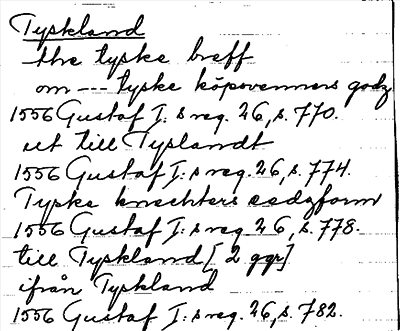 Tyskland
the tyske breff
om --- tyske köpsvenners godz
1556 Gustaf I: s reg. 26, s. 770.
ut till Tyslandt
1556 Gustaf I: s reg. 26, s. 774.
Tyske knechters edzform
1556 Gustaf I: s reg. 26, s. 778.
till Tyskland [2 ggr]
ifrån Tyskland
1556 Gustaf I: s reg. 26, s. 782.